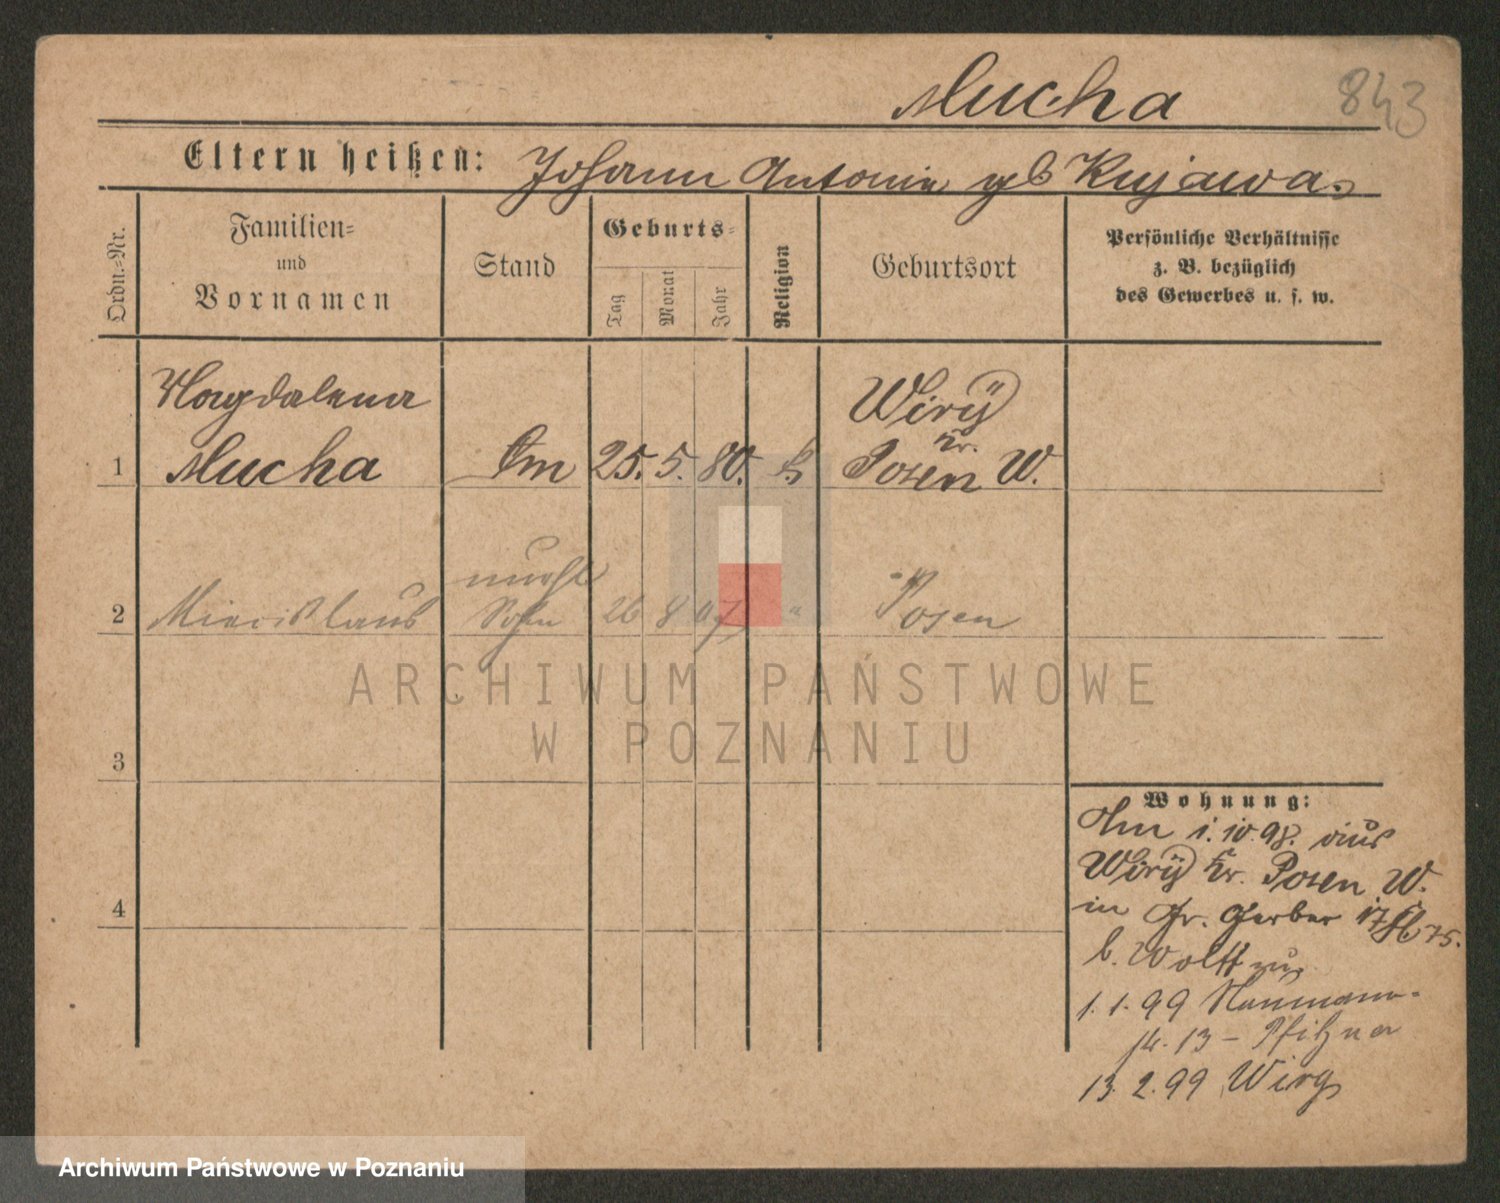 Mucha
843
Eltern heißen: Johann Antonie gb Kujawa.
Ordn.-Nr.
Familien- und Vornamen
Stand
Geburts-
Tag
Monat
Jahr
Religion
Geburtsort
Persönliche Verhältnisse
z. B. bezüglich
des Gewerbes u. s. w.
Magdalena
Wiry
Kr.
1 Mucha 25. 5. 80. k Posen W.
unehl
2 Miecislaus Sohn 26 8 07 " Posen
ARCHIWUM PAŃSTWOWE
W POZNANIU
3
4
Wohnung:
1. 10. 98. aus
Wiry Kr. Posen W.
in Gr. Gerber 17 75.
b. Wolff zu
1. 1. 99 Naumann-
str. 13 - Pfitzner
13. 2. 99 Wiry
Archiwum Państwowe w Poznaniu